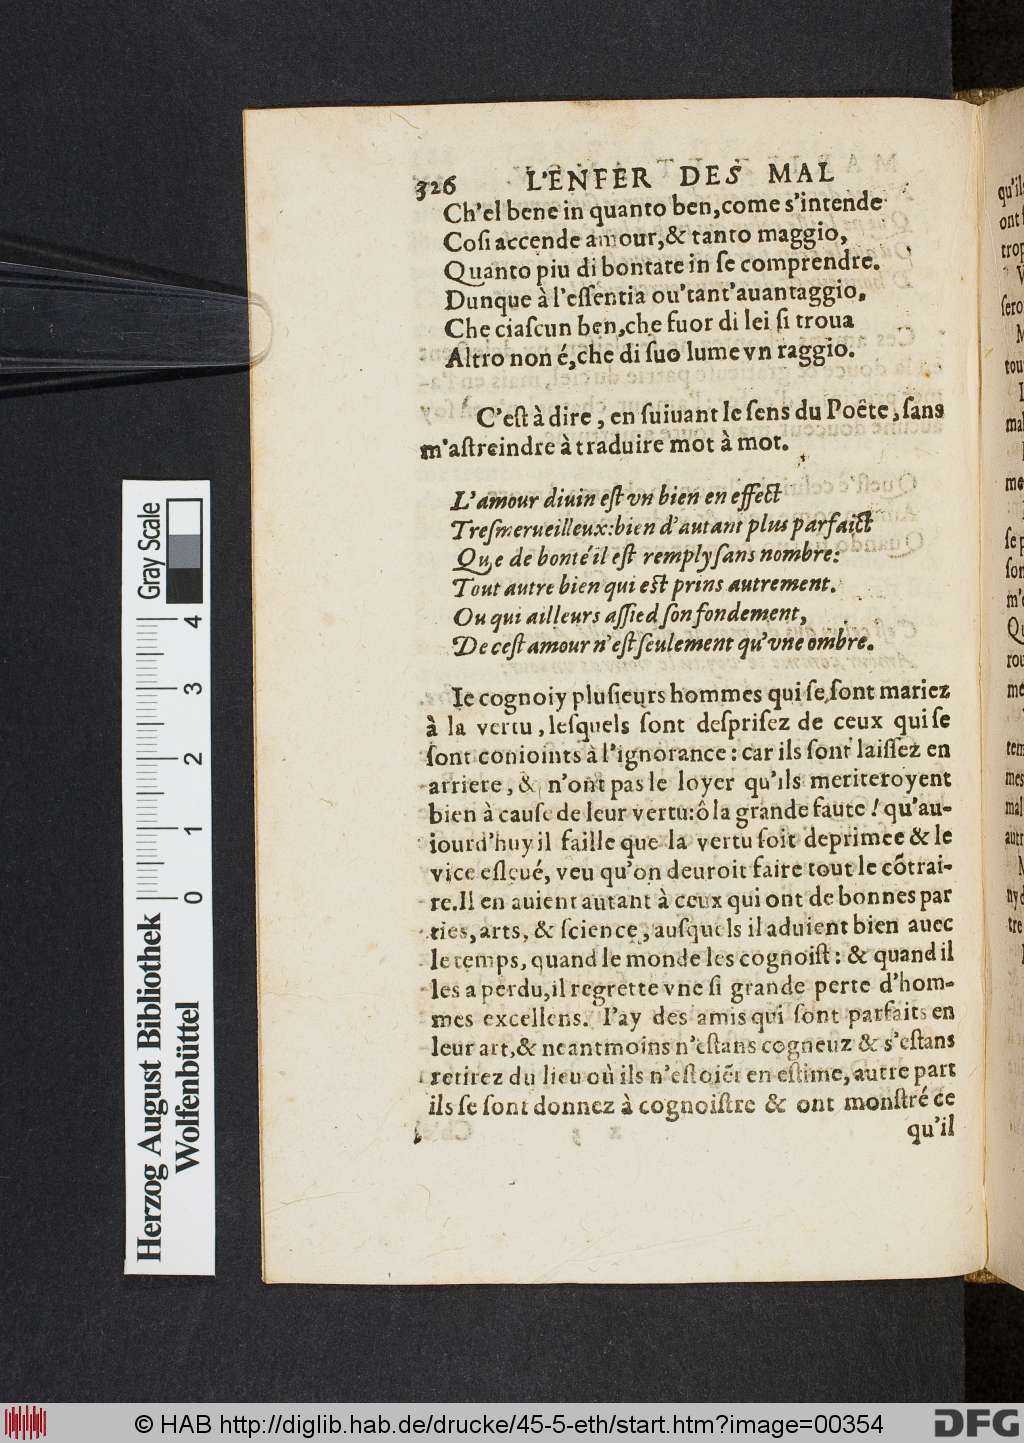 326 L'ENFER DES MAL
Ch'el bene in quanto ben, come s'intende
Cosi accende amour, & tanto maggio,
Quanto piu di bontate in se comprendre.
Dunque à l'essentia ou'tant'auantaggio,
Che ciascun ben, che fuor di lei si troua
Altro non é, che di suo lume vn raggio.
C'est à dire, en suiuant le sens du Poëte, sans
m'astreindre à traduire mot à mot.
L'amour diuin est vn bien en effect
Tresmerueilleux: bien d'autant plus parfaict
Que de bonté il est remply sans nombre:
Tout autre bien qui est prins autrement.
Ou qui ailleurs assied son fondement,
De cest amour n'est seulement qu'vne ombre.
Ie cognoiy plusieurs hommes qui se sont mariez
à la vertu, lesquels sont desprisez de ceux qui se
sont conioints à l'ignorance: car ils sont laissez en
arriere, & n'ont pas le loyer qu'ils meriteroyent
bien à cause de leur vertu: ô la grande faute! qu'au-
iourd'huy il faille que la vertu soit deprimee & le
vice esleué, veu qu'on deuroit faire tout le cõtrai-
re. Il en auient autant à ceux qui ont de bonnes par
ties, arts, & science, ausquels il aduient bien auec
le temps, quand le monde les cognoist: & quand il
les a perdu, il regrette vne si grande perte d'hom-
mes excellens. I'ay des amis qui sont parfaits en
leur art, & neantmoins n'estans cogneuz & s'estans
retirez du lieu où ils n'estoiẽt en estime, autre part
ils se sont donnez à cognoistre & ont monstré ce
qu'il
Gray Scale
0 1 2 3 4
Herzog August Bibliothek
Wolfenbüttel
© HAB http://diglib.hab.de/drucke/45-5-eth/start.htm?image=00354
DFG